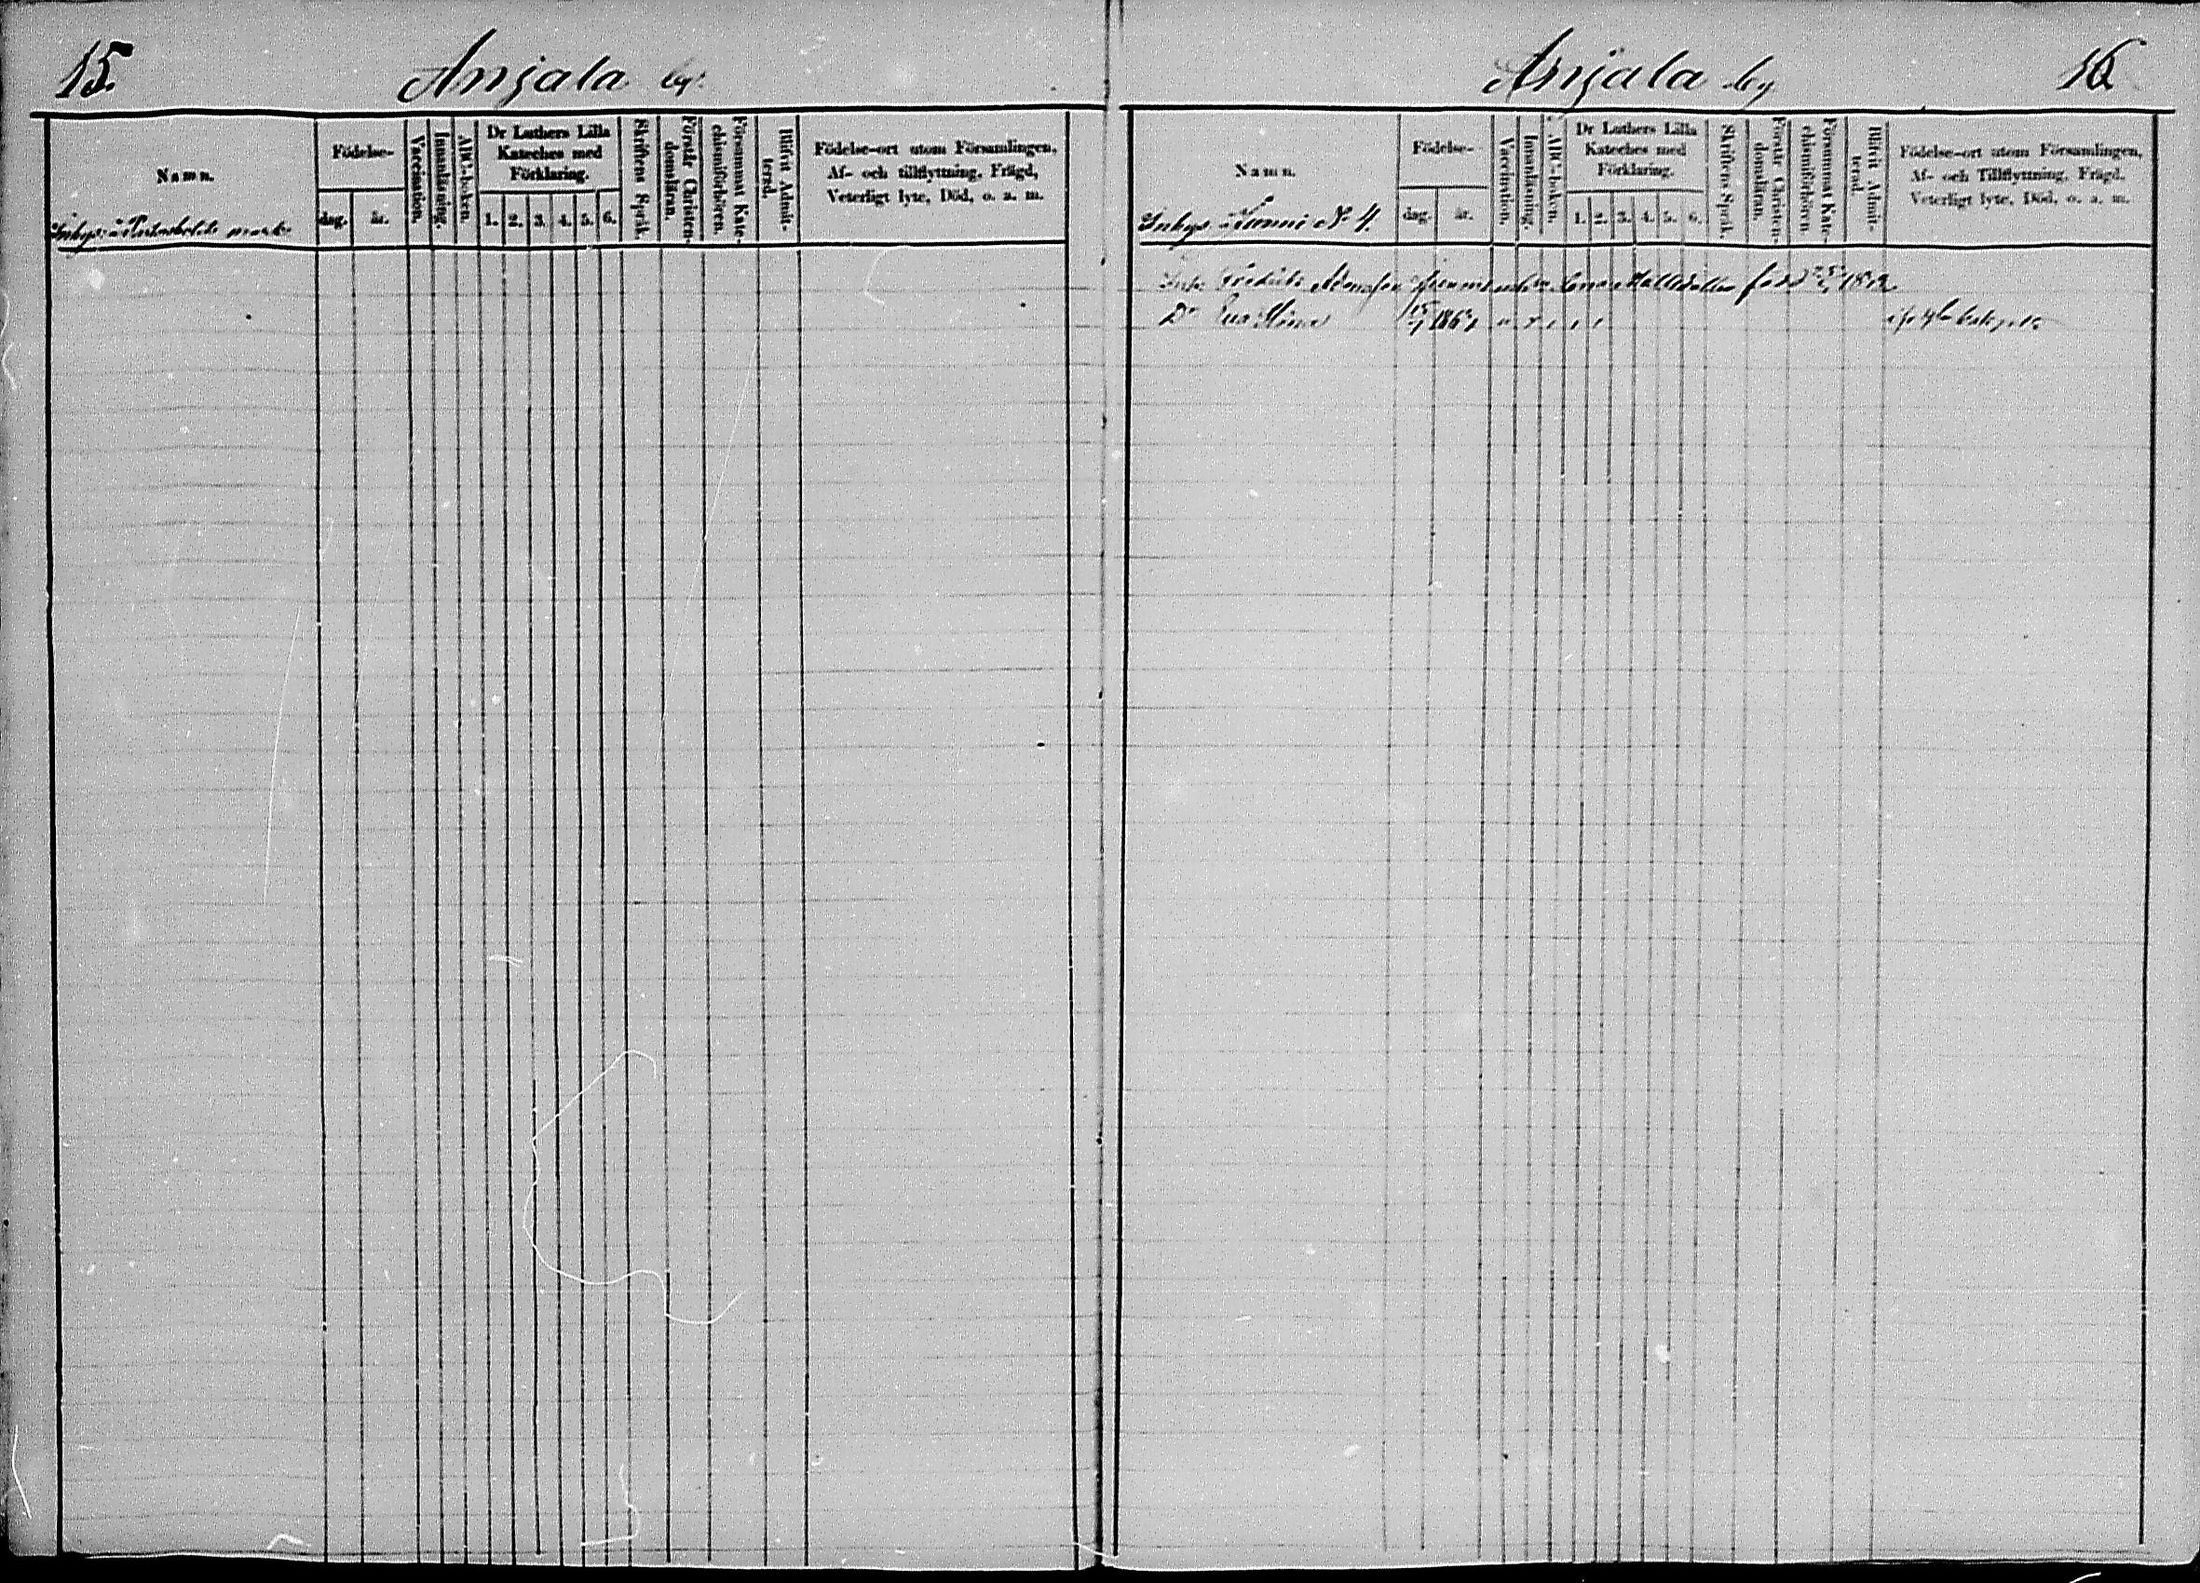 15.
Anjala by.
Namn.
Födelse-
dag.
år.
Vaccination.
Innanläsning.
ABC-boken.
Dr Luthers Lilla
Kateches med
Förklaring.
1. 2. 3. 4. 5. 6.
Skriftens Språk.
Förstår Christen-
domsläran.
Försummat Kate-
chismiförhören.
Blifvit Admit-
terad.
Födelse-ort utom Församlingen,
Af- och tillflyttning, Frägd,
Veterligt lyte, Död, o. a. m.
Inhys: å mark
Anjala by
16
Namn.
Födelse-
dag.
år.
Vaccination.
Innanläsning.
ABC-boken.
Dr Luthers Lilla
Kateches med
Förklaring.
1. 2. 3. 4. 5. 6.
Skriftens Språk.
Förstår Christen-
domsläran.
Försummat Kate-
chismiförhören.
Blifvit Admit-
terad.
Födelse-ort utom Församlingen,
Af- och Tillflyttning, Frägd,
Veterligt lyte, Död, o. a. m.
Inhys å Tanni No 4.
Fredrik Adamsson Lena född
Dr Eva Stina